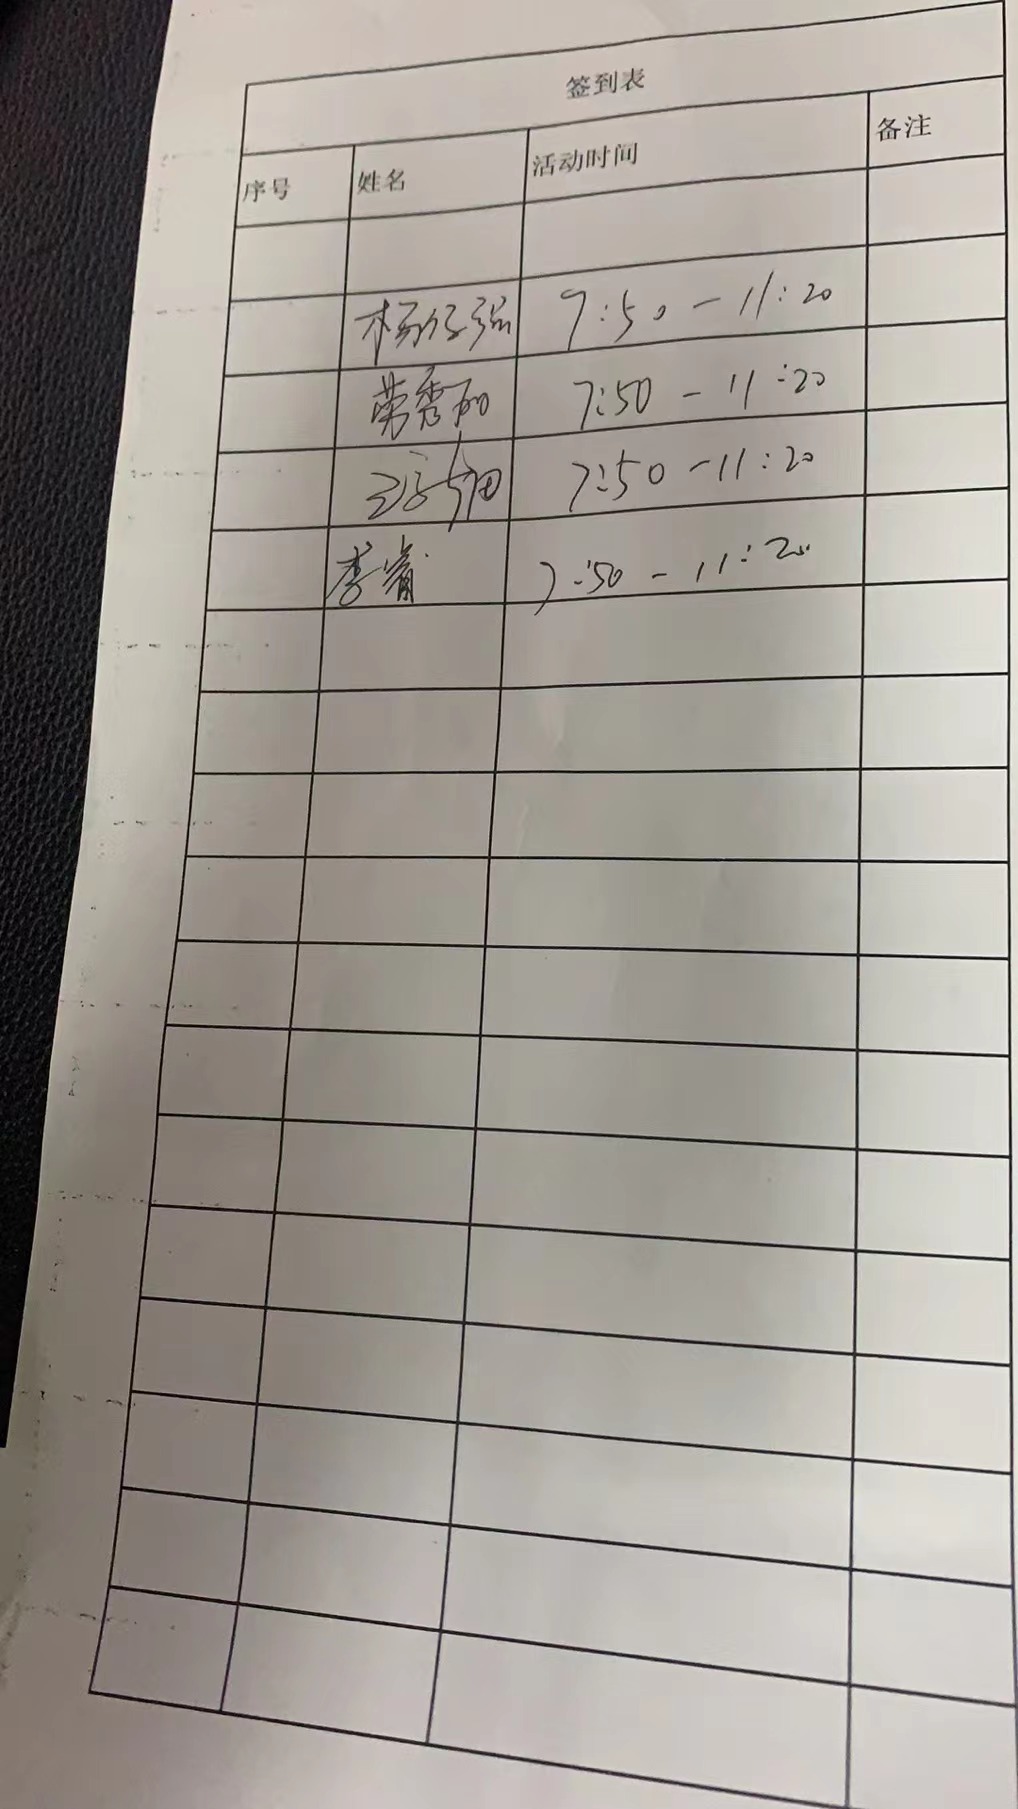 签到表
序号 姓名 活动时间 备注
杨仔强 7:50-11:20
劳秀丽 7:50-11:20
7:50-11:20
李 7:50-11:20